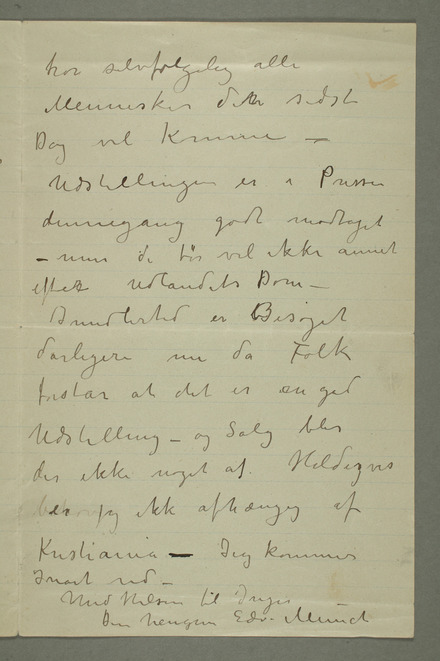 tror selvfølgelig alle
Mennesker den sidste
Dag vil komme —
Udstillingen er i Pressen
dennegang godt modtaget
– men de tør vel ikke annet
efter Udlandets Dom –
Imidlertid er Besøget
dårligere nu da Folk
forstår at det er en god
Udstilling – og Salg blev
der ikke noget af. Heldigvis
er jeg ikke afhængig af
Kristiania — Jeg kommer
snart ned –
Med Hilsen til Inger –
Din hengivne Edv. Munch